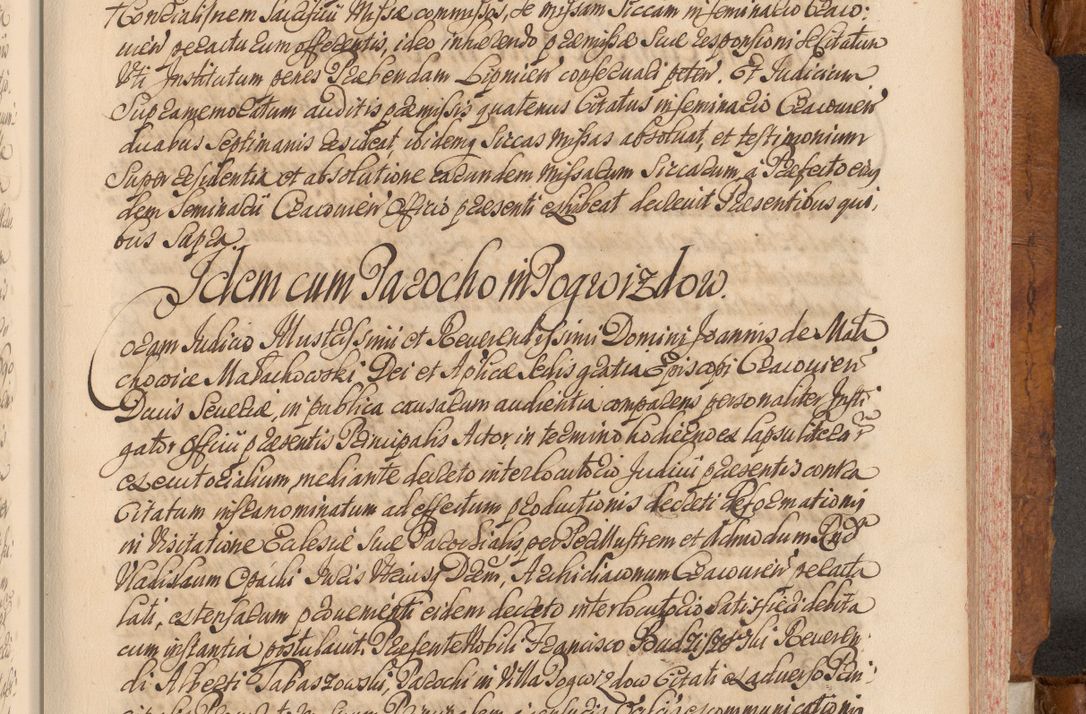 tionalis inem Sacrificii Missæ commissis, de missam Siccam in seminario Craco,
uien̄ peractu cum offerentis, ideo inhærendo præmissæ suæ responsioni et Citatum
Uti Institutum penes Præbendam Lipnien̄ conservari petiit. Et Iudicium
Supramemoratum auditis præmissis quatenus Citatus in seminario Cracouien̄
duabus Septimanis resideat ibidemq́ Siccas Missas absoluat, et testimonium
Super residentia et absolutione earundem Missarum Siccarum, à Præfecto eius,
dem Seminarii Cracouien̄ Officio præsenti exhibeat decreuit Præsentibus qui,
bus Supra.
Idem cum Parocho in Pogwizdow.
Coram Iudicio Illustrissimi et Reuerendissimi Domini Joannis de Mała
chowice Małachowski Dei et Aplicæ Sedis gratia Episcopi Cracouien̄
Ducis Seueriæ, in publica causarum audientia comparens personaliter Insti
gator Officii præsentis Principalis Actor in termino hodierno ex lapsu litterar̄
executorialium, mediante decreto interlocutorio Iudicii præsentis contra
Citatum infranominatum ad effectum productionis decreti reformationis
in Visitatione Ecclesiæ suæ Parochialis per Perillustrem et Admodum Rñdū
Vladislaum Opacki Iuris Utriusq́ Drem, Archidiaconum Cracouien̄ peracta
lati, extensarum proueniñti eidem decreto interlocutorio satisfieri debita
cum instantia postulauit. Præsente Nobili Francisco Budziszewski Reueren,
di Alberti Tabaszowski, Parochi in Villa Pogwizdow Citati ex aduerso Prin,